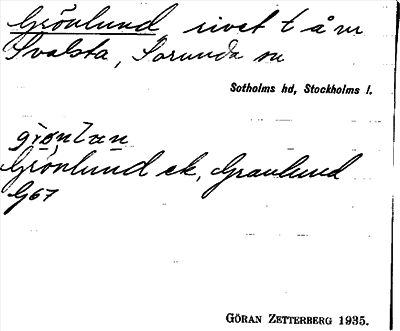 Grönlund, rivet t å nr
Svalsta, Sorunda sn
Sotholms hd, Stockholms l.
grønlan
Grönlund ek, Graulund
G67
GÖRAN ZETTERBERG 1935.